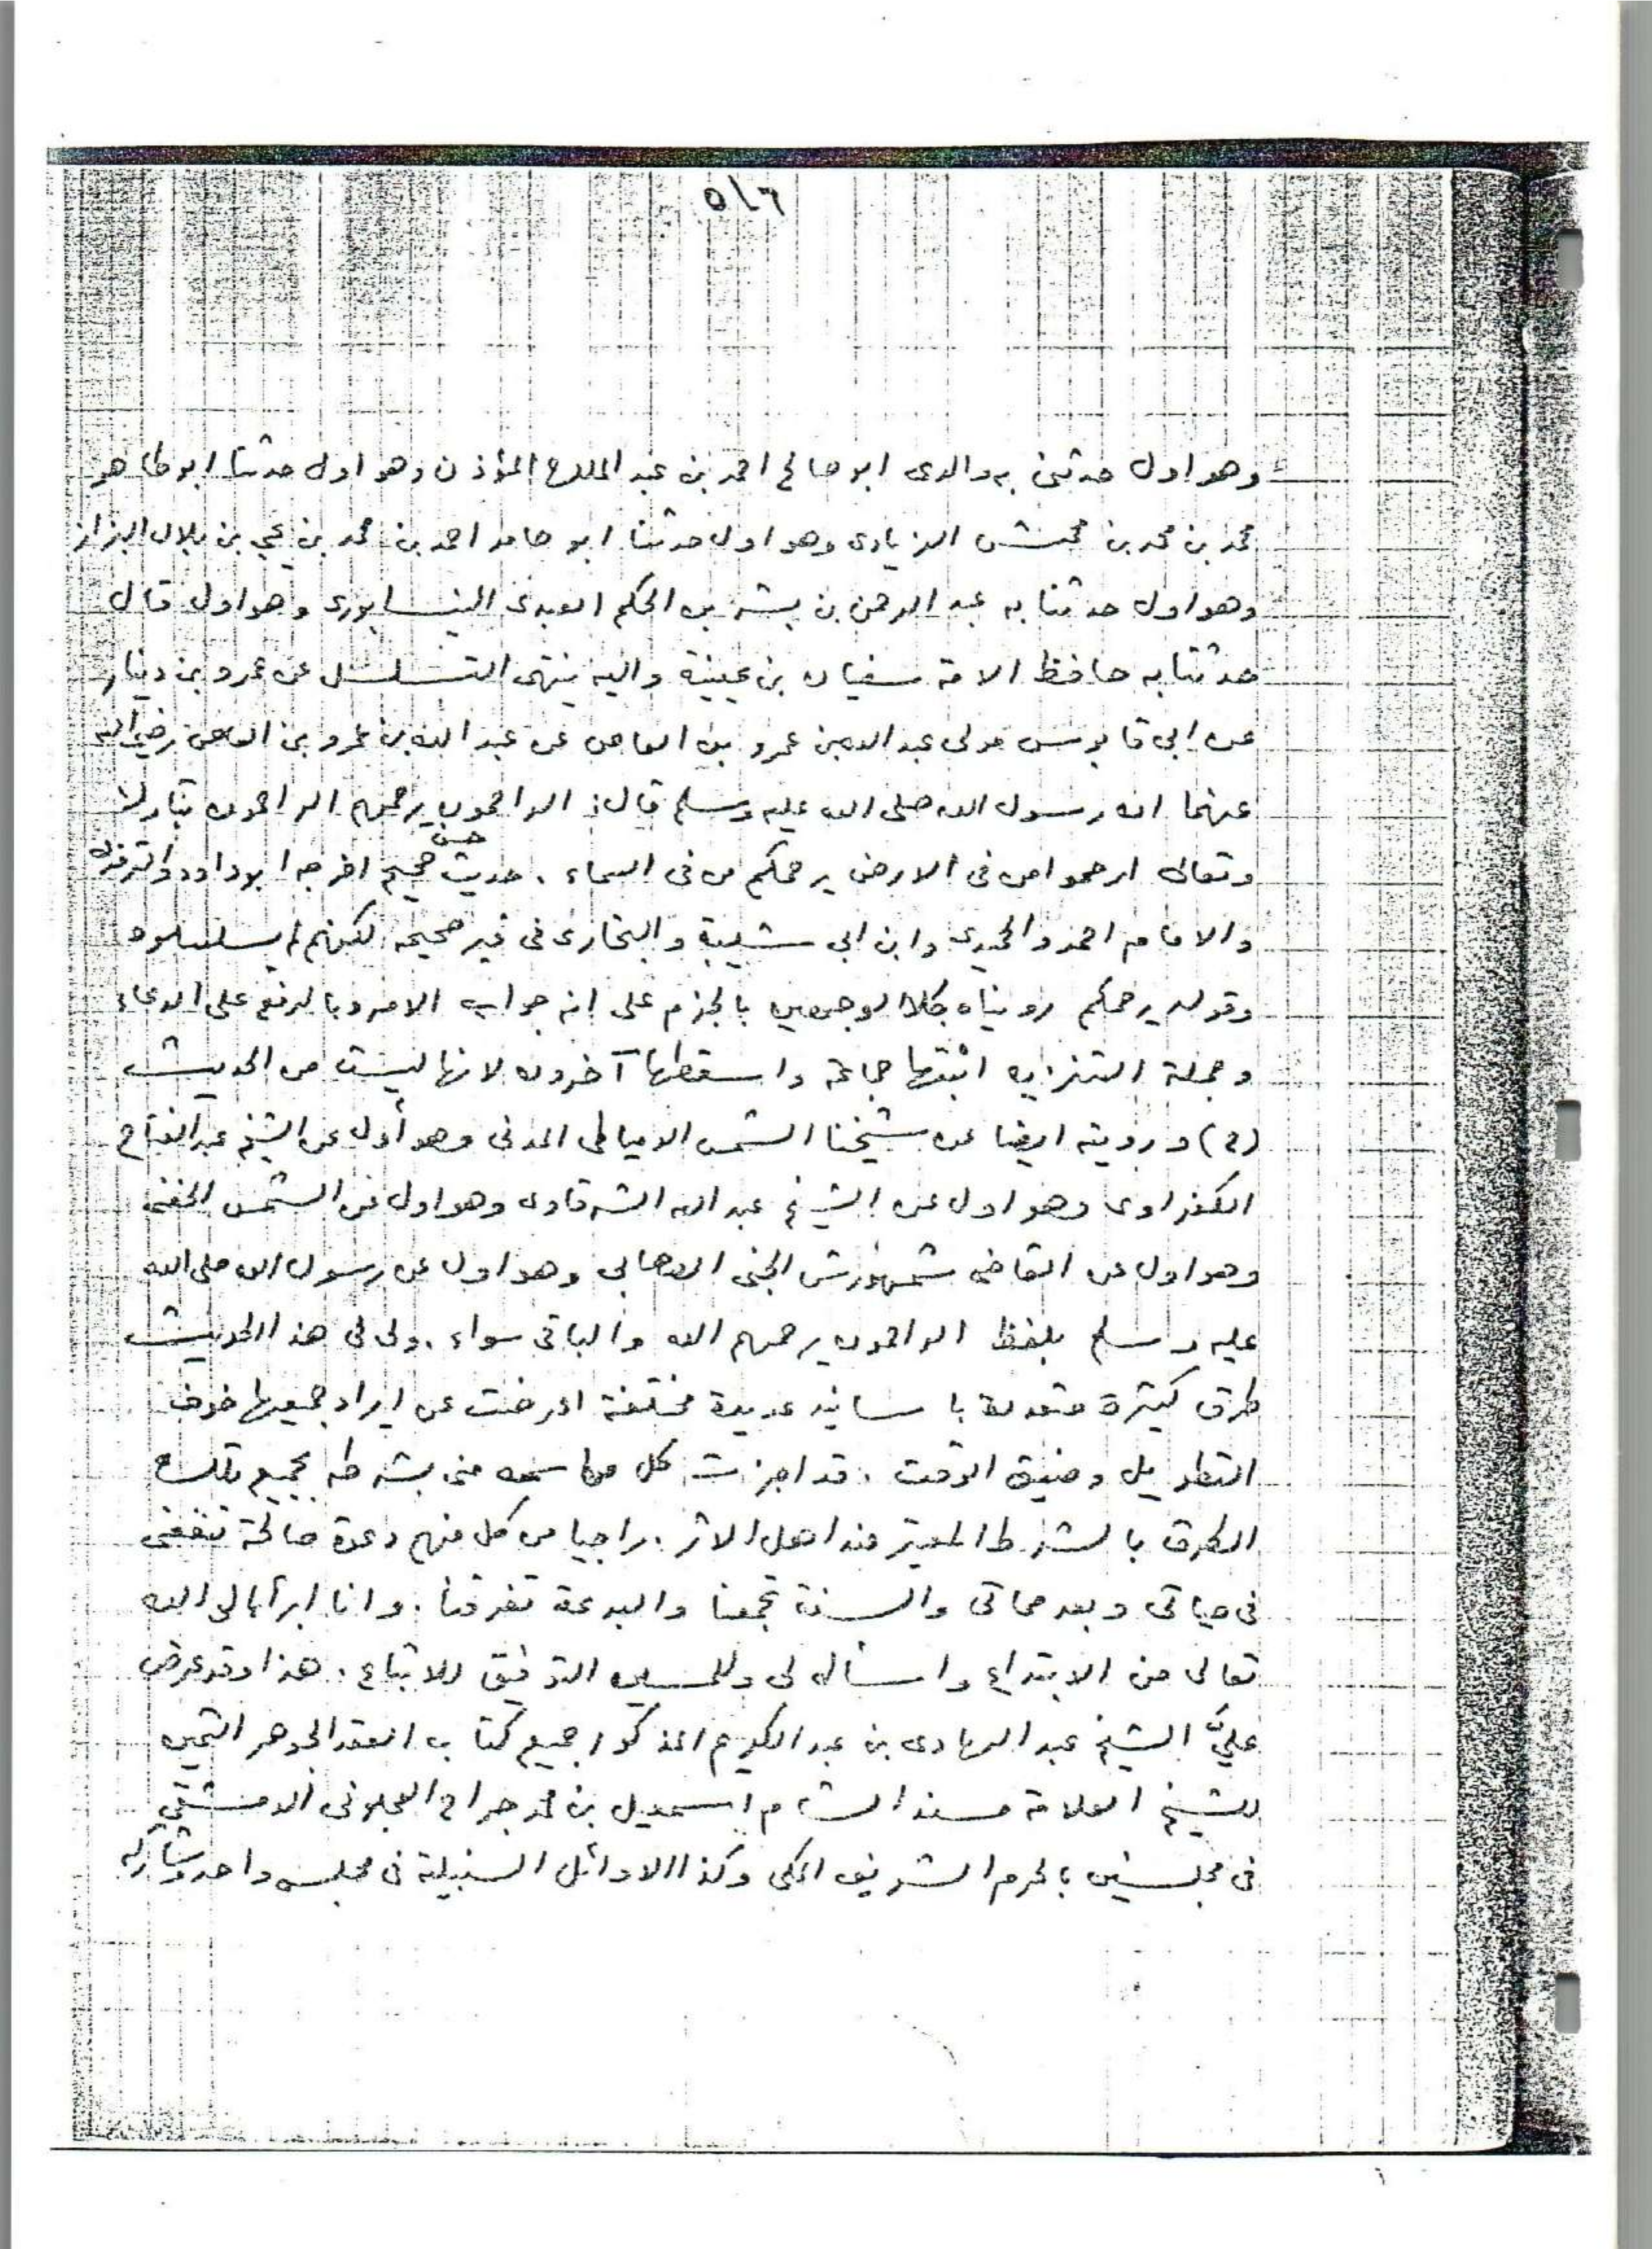 ٥/٦
وهو اول حدثنى به والدى ابو صالح احمد بن عبد الملك المؤذن وهو اول حدثنا ابو طاهر
محمد بن محمد بن محمش الزيادى وهو اول حدثنا ابو حامد احمد بن محمد بن يحيى بن بلال البزاز
وهو اول حدثنا به عبد الرحمن بن بشر بن الحكم العبدى النيسابورى وهو اول قال
حدثنا به حافظ الامة سفيان بن عيينة واليه ينتهى التسلسل عن عمرو بن دينار
عن ابى قابوس مولى عبد الله بن عمرو بن العاص عن عبد الله بن عمرو بن العاص رضي الله
عنهما ان رسول الله صلى الله عليه وسلم قال: الراحمون يرحمهم الرحمن تبارك
وتعالى ارحموا من فى الارض يرحمكم من فى السماء . حديث حسن صحيح اخرجه ابو داود والترمذى
والامام احمد والحميدى وابن ابى شيبة والبخارى فى غير صحيحه لكنهم لم يسلسلوه
وقوله يرحمكم رويناه بكلا الوجهين بالجزم على انه جواب الامر وبالرفع على الدعاء
وجملة التنزيه اثبتها جماعة واسقطها آخرون لانها ليست من الحديث
(ح) ورويته ايضا عن شيخنا الشمس الدمياطى المدنى وهو أول عن الشيخ عبد الفتاح
الكفراوى وهو اول عن الشيخ عبد الله الشرقاوى وهو اول عن الشمس الحفنى
وهو اول عن القاضى شمهورش الجنى الصحابى وهو اول عن رسول الله صلى الله
عليه وسلم بلفظ الراحمون يرحمهم الله والباقى سواء . ولى فى هذا الحديث
طرق كثيرة متعددة باسانيد عديدة مختلفة اعرضت عن ايراد جميعها خوف
التطويل وضيق الوقت . قد اجزت كل من سمعه منى بشرطه بجميع تلك
الطرق بالشرط المعتبر عند اهل الاثر . راجيا من كل منهم دعوة صالحة تنفعنى
فى حياتى وبعد مماتى والسنة تجمعنا والبدعة تفرقنا . وانا ابرأ الى الله
تعالى من الابتداع واسأله لى وللمسلمين التوفيق للاتباع . هذا وقد عرض
عليَّ الشيخ عبد الهادى بن عبد الكريم المذكور جميع كتاب العقد الجوهر الثمين
للشيخ العلامة مسند الشام اسمعيل بن محمد جراح العجلونى الدمشقي
فى مجلسين بالحرم الشريف المكى وكذا الاوائل السنبلية فى مجلس واحد وشاركه